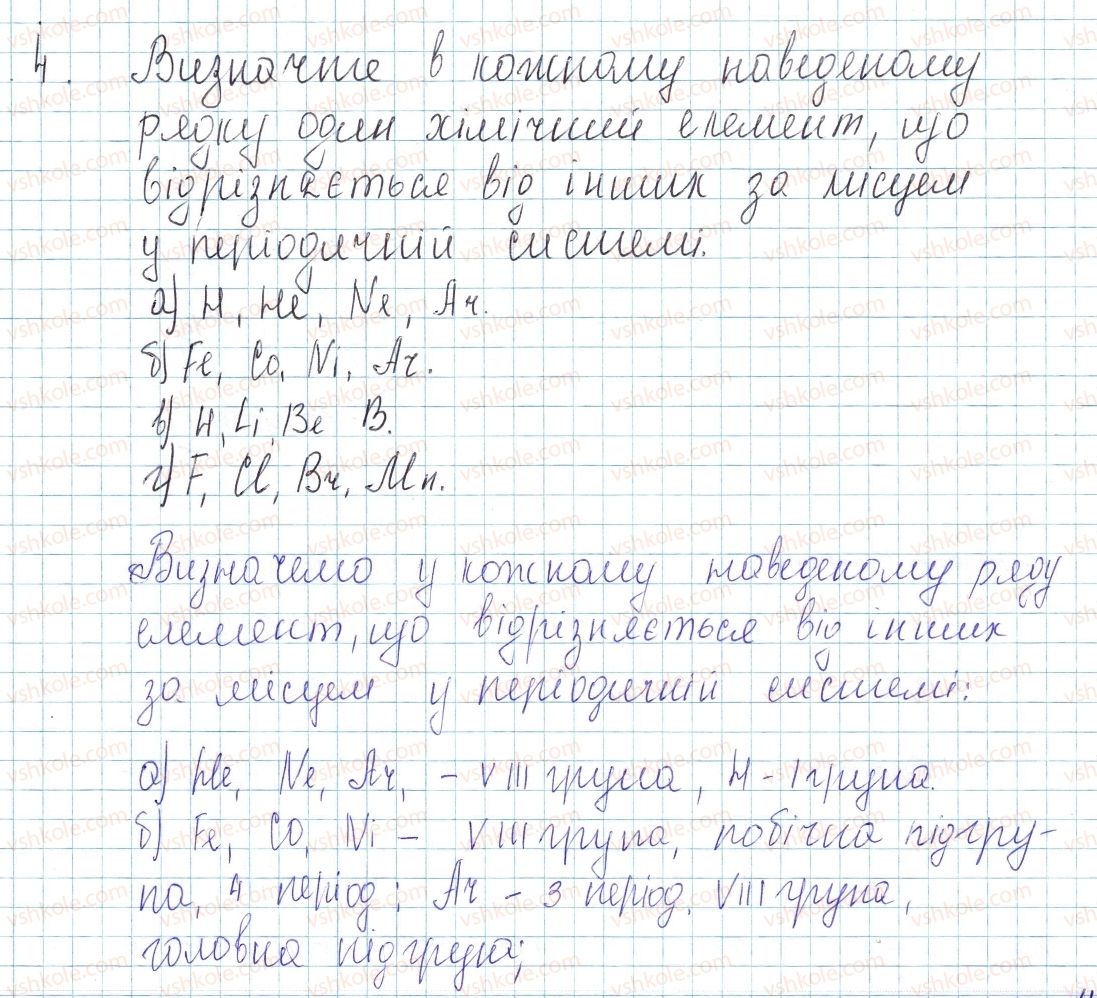 4. Визначте в кожному наведеному
рядку один хімічний елемент, що
відрізняється від інших за місцем
у періодичній системі.
а) H, He, Ne, Ar.
б) Fe, Co, Ni, Ar.
в) H, Li, Be B.
г) F, Cl, Br, Mn.
Визначемо у кожному наведеному ряду
елемент, що відрізняється від інших
за місцем у періодичній системі:
а) He, Ne, Ar, – VIII група, H – I група.
б) Fe, CO, Ni – VIII група, побічна підгру-
па, 4 період; Ar – 3 період, VIII група,
головна підгрупа;